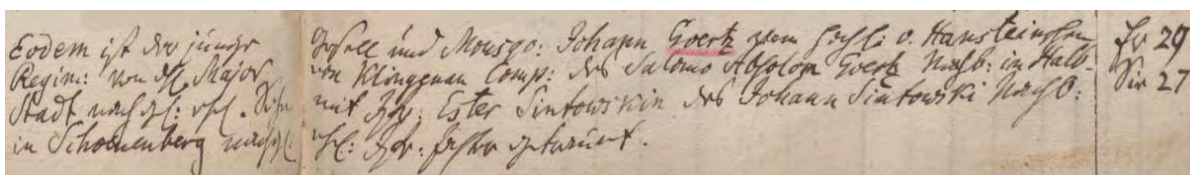 Eodem ist der junge Gesell und Mousq: Johann Goertz vom Hochl: v. Hansteinschen Er 29
Regim: von des Major von Klinggnau Comp: des Salomo Absolon Goertz Nachb: in Halb- Sie 27
Stadt nachgel: ehel. Sohn mit Jgfr: Ester Sintowskin des Johann Sintowski Nachb:
in Schoenenberg nachgel: ehel: Jgfr: Tochter getrauet.